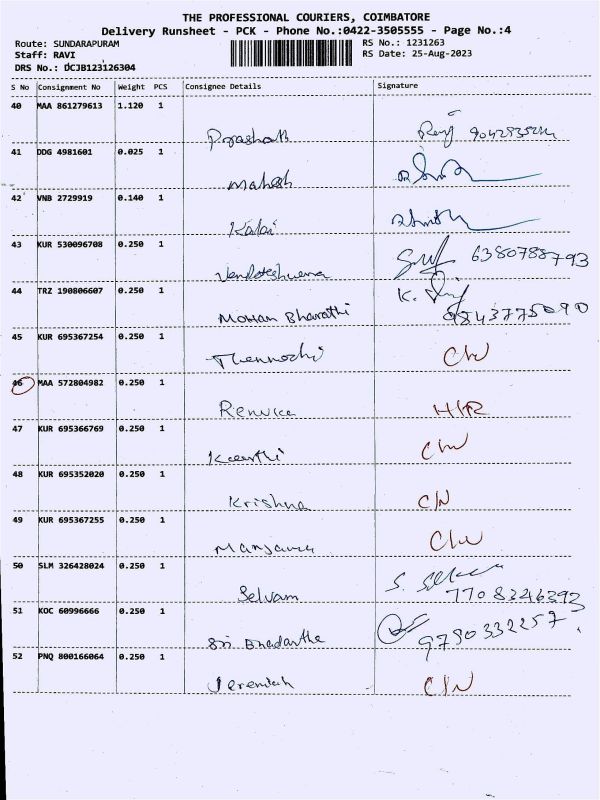 THE PROFESSIONAL COURIERS, COIMBATORE
Delivery Runsheet - PCK - Phone No.:0422-3505555 - Page No.:4
Route: SUNDARAPURAM RS No.: 1231263
Staff: RAVI RS Date: 25-Aug-2023
DRS No.: DCJB123126304
S No Consignment No Weight PCS Consignee Details Signature
40 MAA 861279613 1.120 1
Prashath
41 DDG 4981601 0.025 1
Mahesh
42 VNB 2729919 0.140 1
Kalai
43 KUR 530096708 0.250 1 6380788793
Venkateshwena
44 TRZ 190806607 0.250 1 K.
Mohan Bharathi 9843775090
45 KUR 695367254 0.250 1
Thennozhi C/N
46 MAA 572804982 0.250 1
Renuka H/R
47 KUR 695366769 0.250 1
Keerthi C/N
48 KUR 695352020 0.250 1
Krishna C/N
49 KUR 695367255 0.250 1
C/N
50 SLM 326428024 0.250 1 S.
Selvam 7708346393
51 KOC 60996666 0.250 1
Sri 9790332257
52 PNQ 800166064 0.250 1
Jeremiah C/N